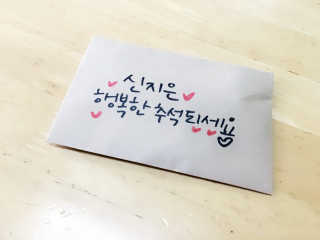 신지은
행복한 추석 되세요